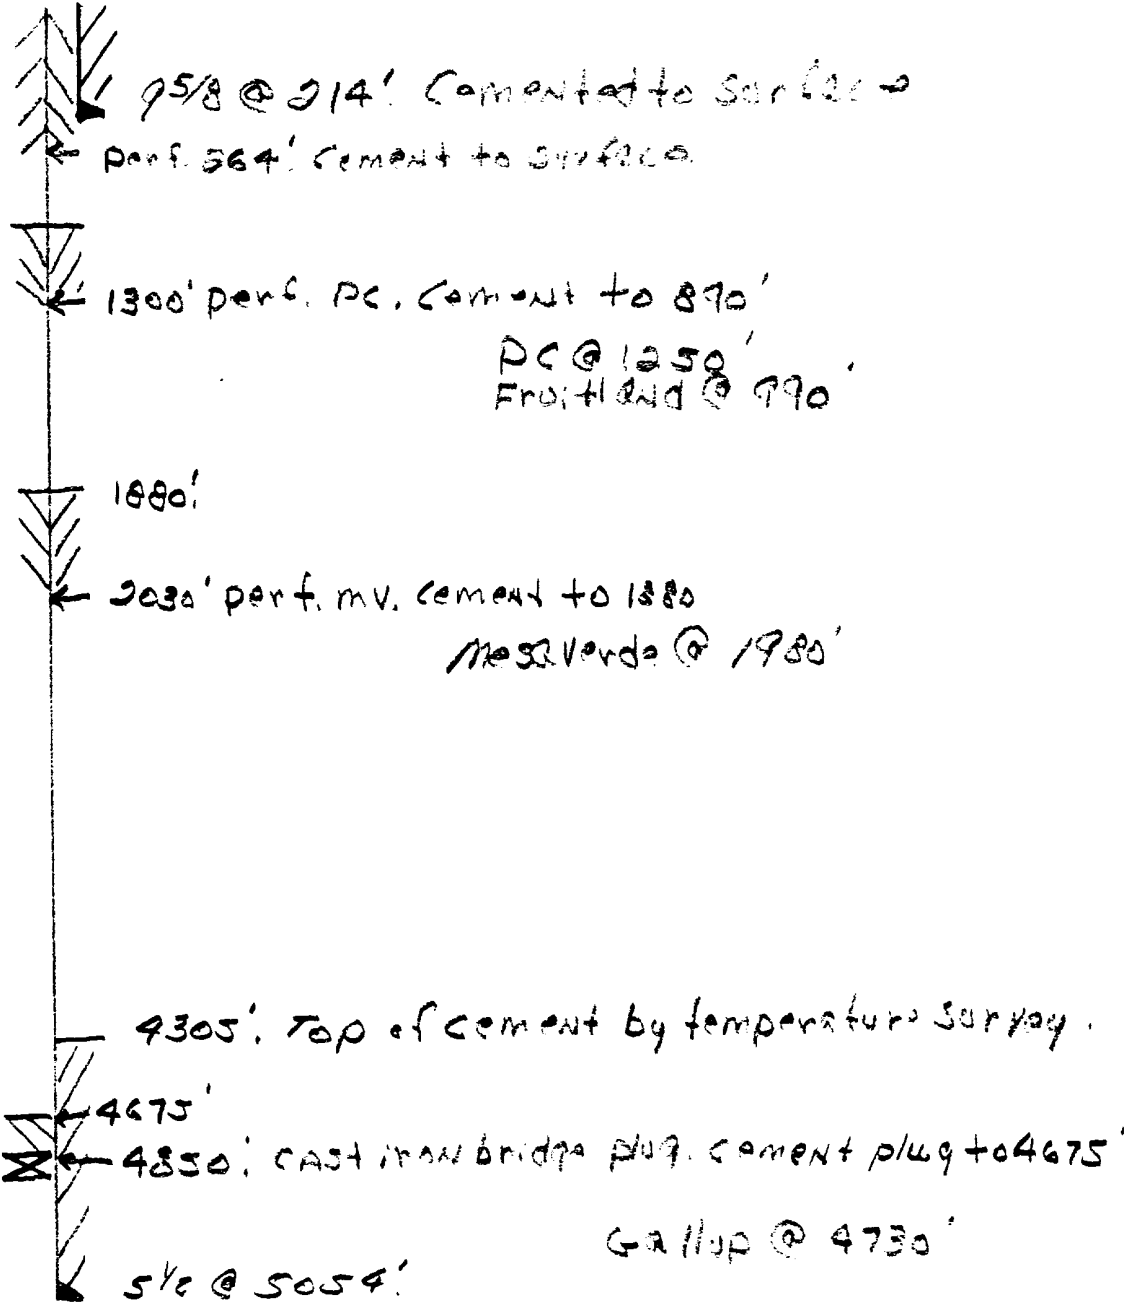 9 5/8 @ 214'. Cemented to surface
perf. 564'. cement to surface
1300' perf. PC. Cement to 890'
PC @ 1250'
Fruitland @ 990'
1880'.
2030' perf. mv. cement to 1880
Mesaverde @ 1980'
4305'. Top of cement by temperature survey.
4675'
4850'. cast iron bridge plug. cement plug to 4675'
Gallup @ 4730'
5 1/2 @ 5054'.